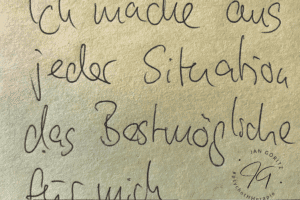 Ich mache aus
jeder Situation
das Bestmögliche
für mich
JAN GÖRITZ